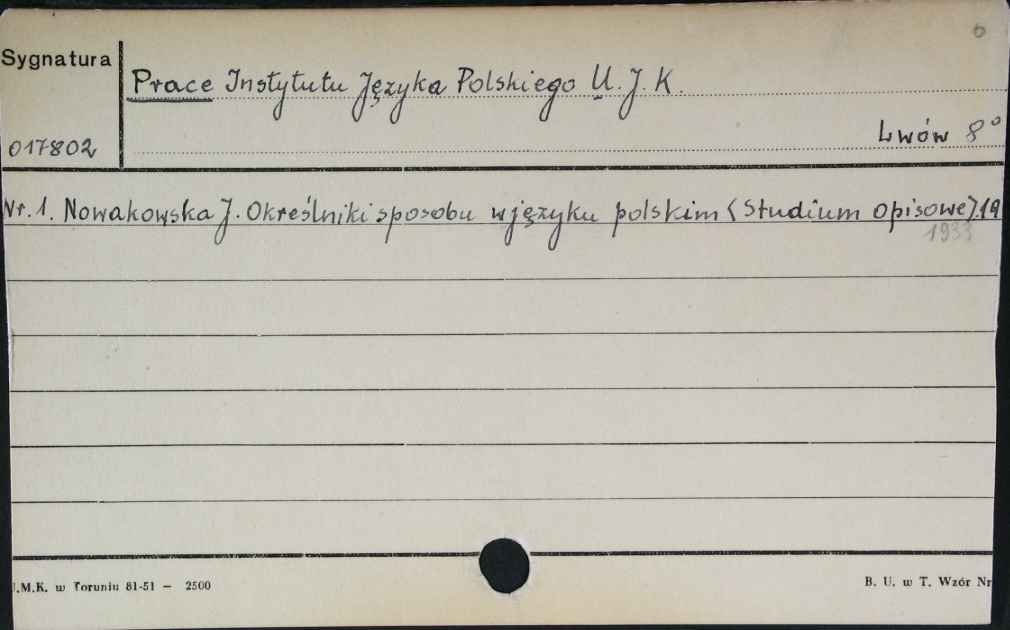 Sygnatura
Prace Instytutu Języka Polskiego U. J. K.
017802
Lwów 8°
Nr. 1. Nowakowska J. Określniki sposobu w języku polskim (Studium opisowe). 19
1933
U.M.K. w Toruniu 81-51 — 2500
B. U. w T. Wzór Nr